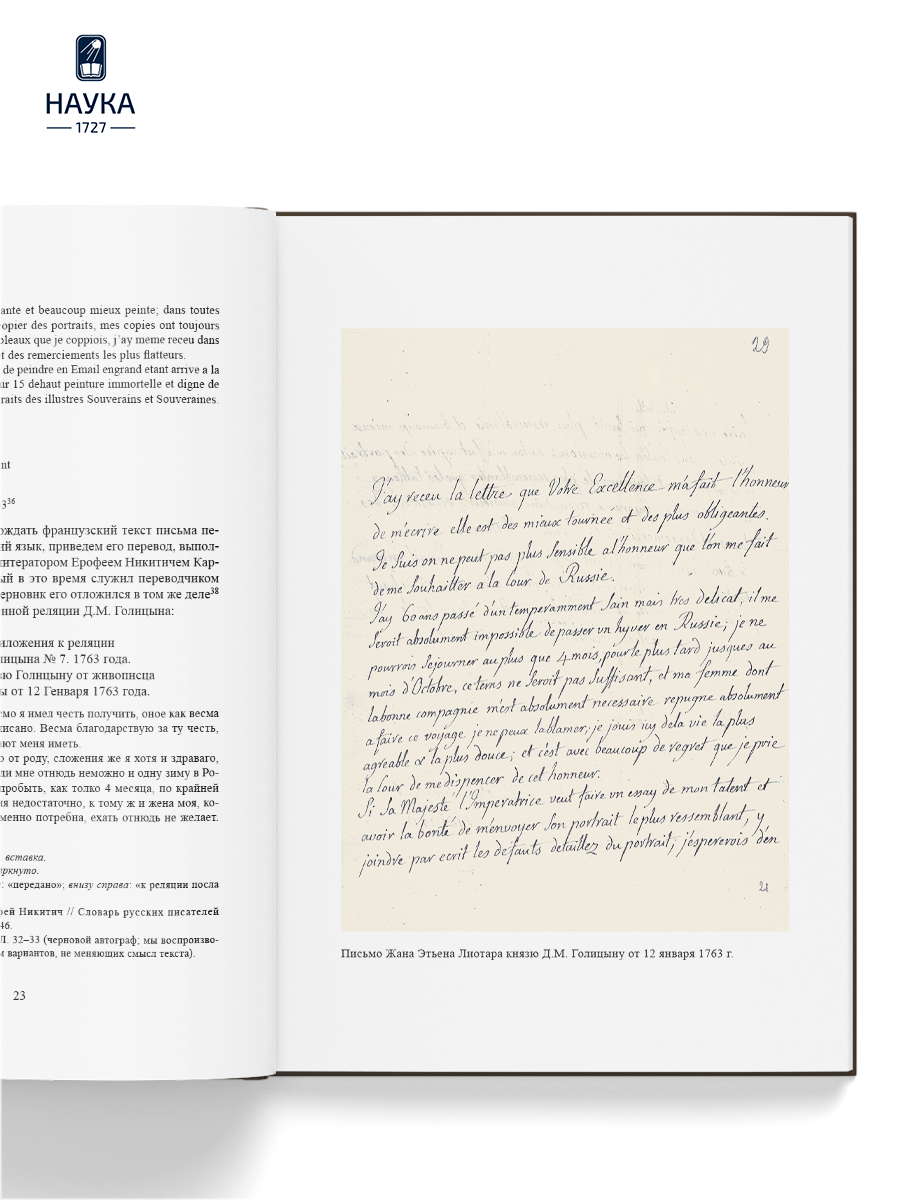 НАУКА
1727
ante et beaucoup mieux peinte; dans toutes
opier des portraits, mes copies ont toujours
bleaux que je coppiois, j’ay meme receu dans
t des remerciements les plus flatteurs.
de peindre en Email engrand etant arrive a la
ur 15 dehaut peinture immortelle et digne de
raits des illustres Souverains et Souveraines.
nt
3³⁶
ождать французский текст письма пе-
ий язык, приведем его перевод, выпол-
литератором Ерофеем Никитичем Кар-
ый в это время служил переводчиком
ерновик его отложился в том же деле³⁸
енной реляции Д.М. Голицына:
иложения к реляции
лицына № 7. 1763 года.
зю Голицыну от живописца
ы от 12 Генваря 1763 года.
смо я имел честь получить, оное как весма
писано. Весма благодарствую за ту честь,
ают меня иметь.
о от роду, сложения же я хотя и здраваго,
ди мне отнюдь неможно и одну зиму в Ро-
пробыть, как толко 4 месяца, по крайней
мя недостаточно, к тому ж и жена моя, ко-
менно потребна, ехать отнюдь не желает.
вставка.
еркнуто.
: «передано»; внизу справа: «к реляции посла
фей Никитич // Словарь русских писателей
46.
Л. 32–33 (черновой автограф; мы воспроизво-
м вариантов, не меняющих смысл текста).
23
29
J'ay receu la lettre que Votre Excellence m'a fait l'honneur
de m'ecrire elle est des mieux tournée et des plus obligeantes.
Je suis on ne peut pas plus sensible a l'honneur que l'on me fait
de me souhaitter a la cour de Russie.
J'ay 60 ans passé d'un temperamment sain mais tres delicat, il me
seroit absolument impossible de passer un hyver en Russie; je ne
pourrois sejourner au plus que 4 mois, pour le plus tard jusques au
mois d'Octobre, ce tems ne seroit pas suffisant, et ma femme dont
la bonne compagnie m'est absolument necessaire repugne absolument
a faire ce voyage je ne peux la blamer; je jouis icy de la vie la plus
agreable & la plus douce; et c'est avec beaucoup de regret que je prie
la cour de me dispencer de cet honneur.
Si Sa Majesté l'Imperatrice veut faire un essay de mon talent et
avoir la bonté de m'envoyer son portrait le plus ressemblant, y
joindre par ecrit les defauts detaillez du portrait; j'espererois d'en
21
Письмо Жана Этьена Лиотара князю Д.М. Голицыну от 12 января 1763 г.